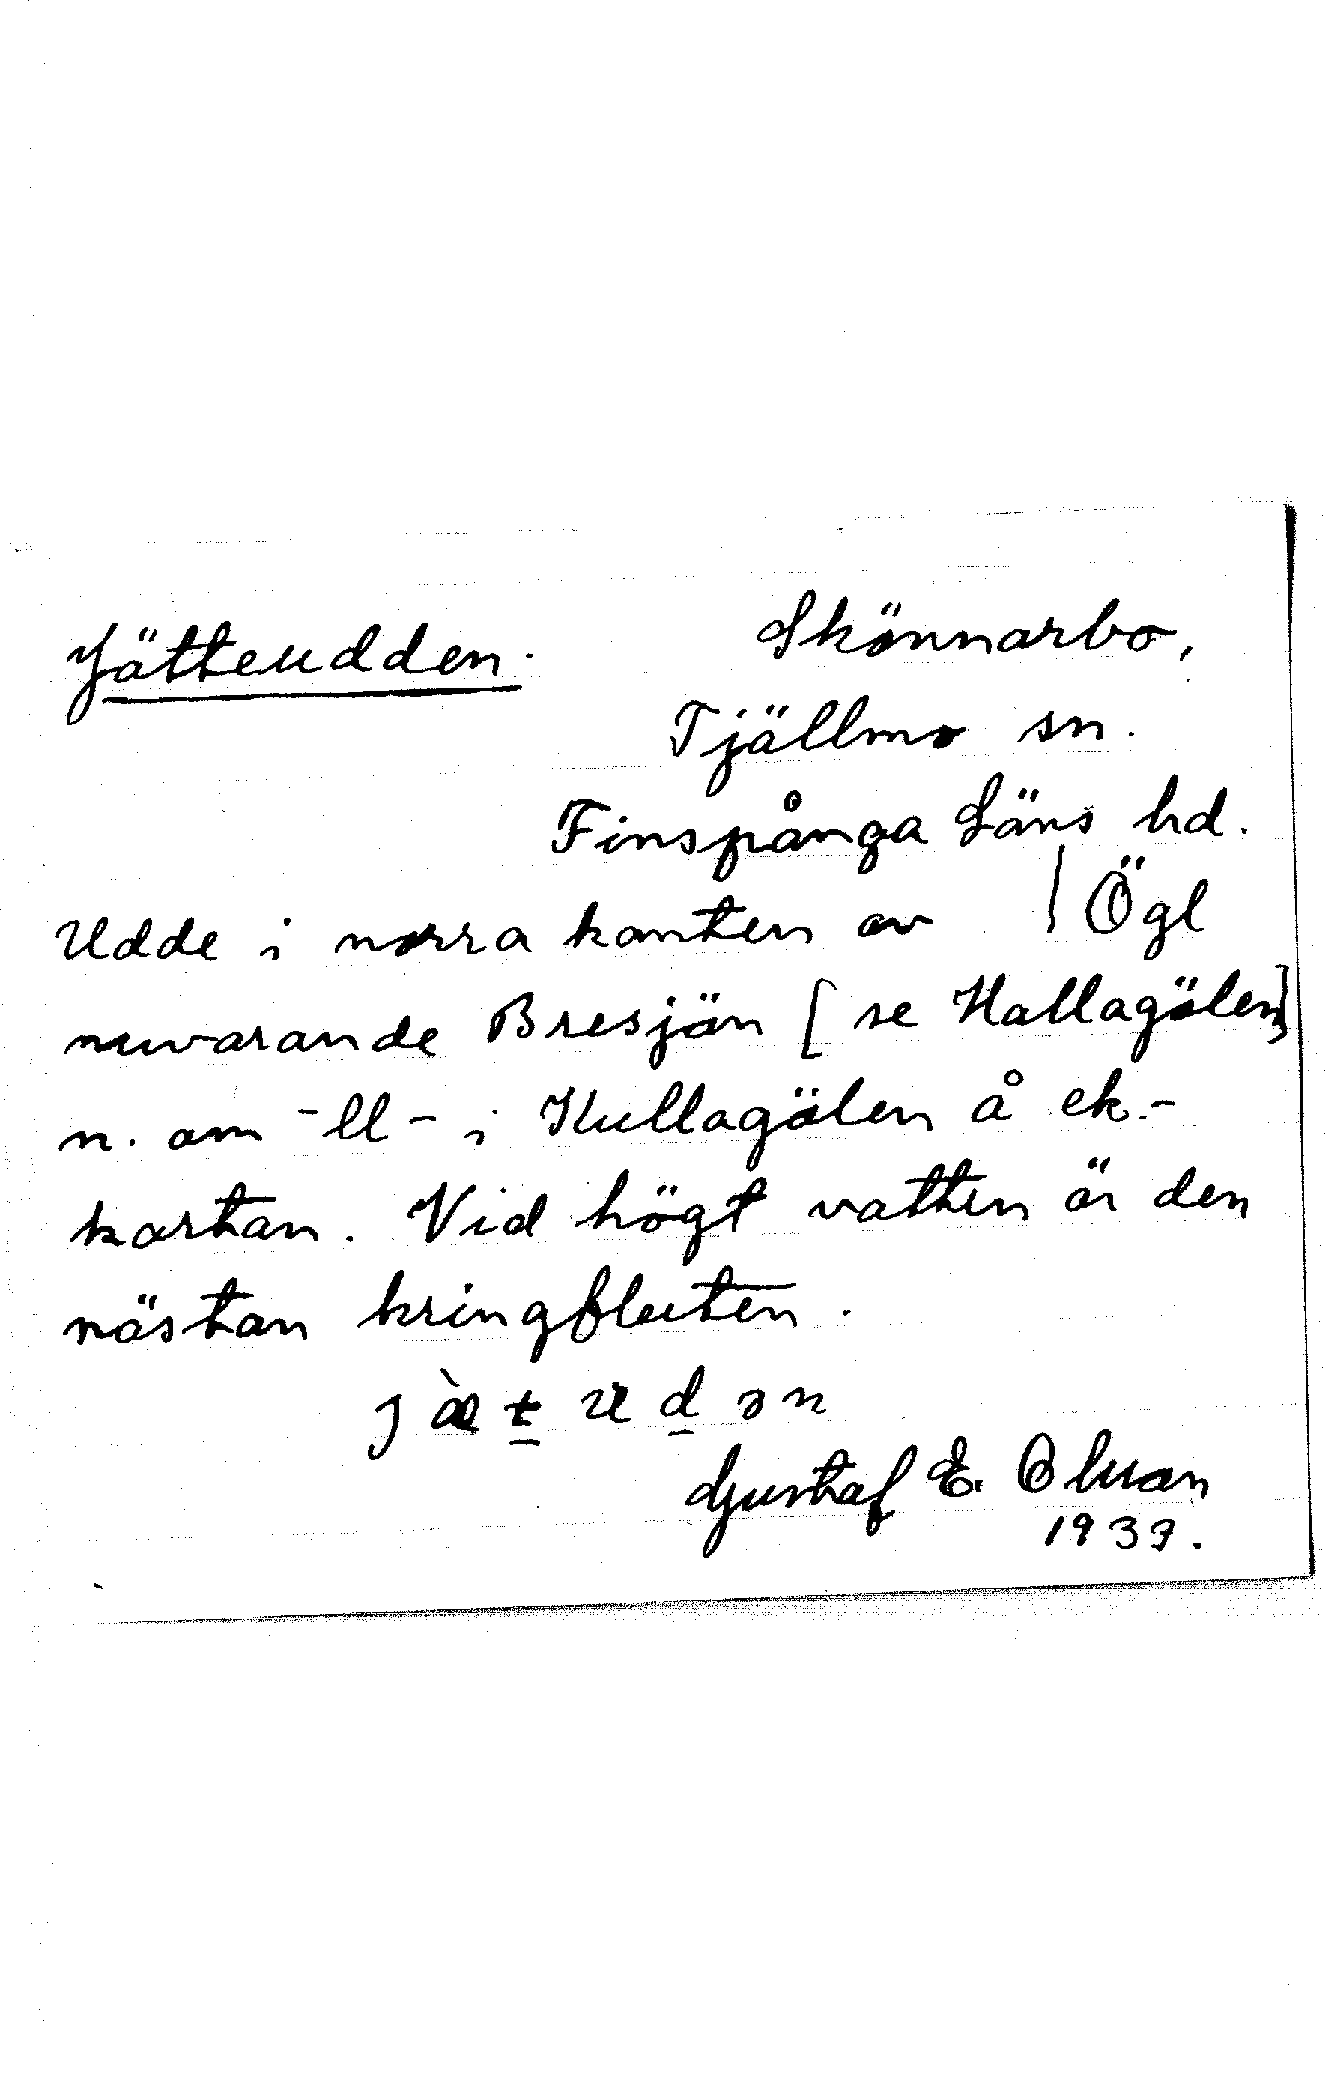 Jätteudden.
Skönnarbo,
Tjällmo sn.
Finspånga Läns hd.
Ögl
Udde i norra kanten av
nuvarande Bresjön [se Hallagölen]
n. om -ll- i Kullagölen å ek.-
kartan. Vid högt vatten är den
nästan kringfluten.
Gustaf E. Olsson
1939.